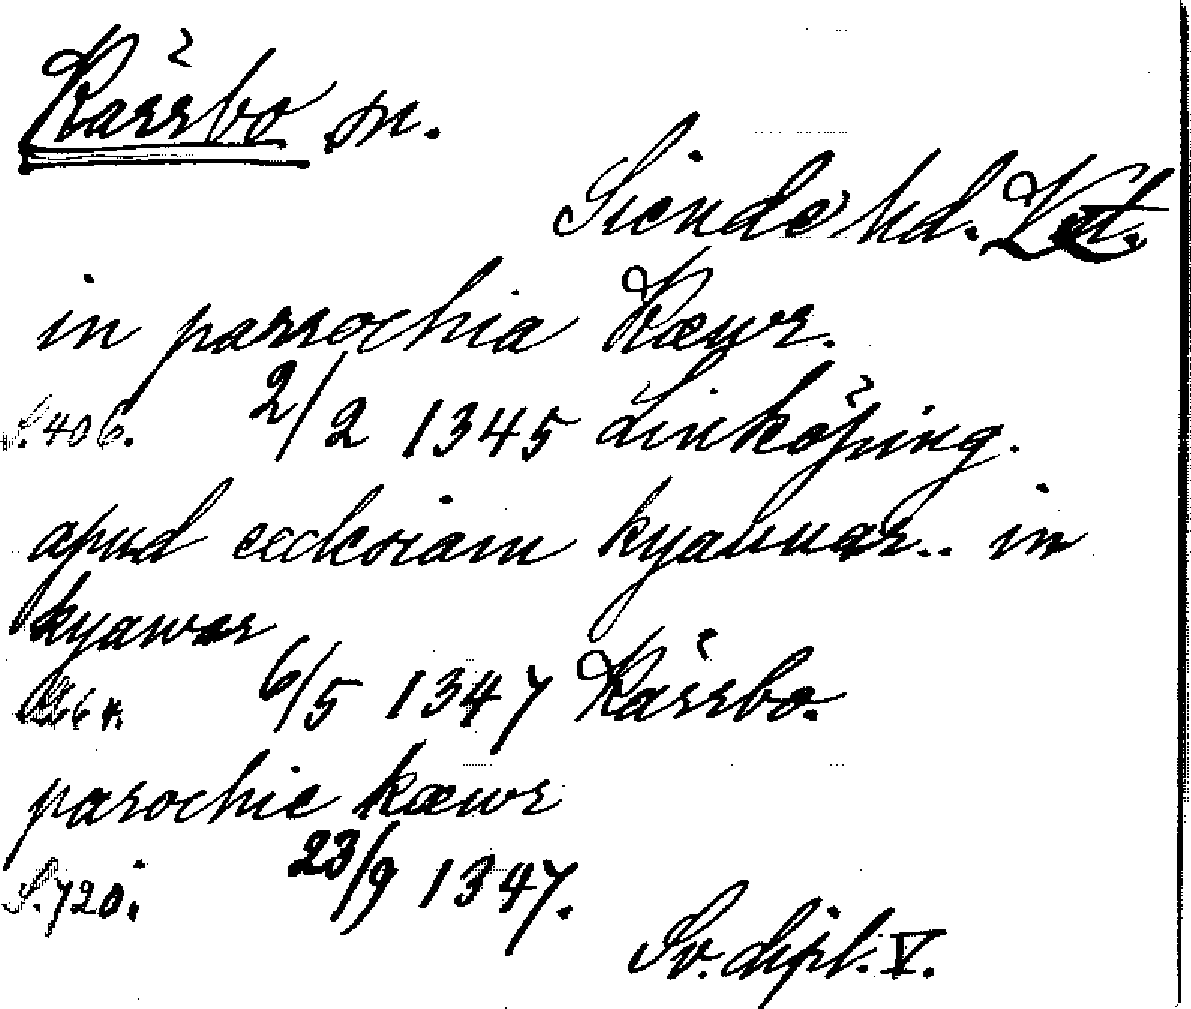 Kärrbo sn.
Siende hd. Vstm.
in parrochia Kæwr.
S. 406. 2/2 1345 Linköping.
apud ecclesiam kyavuar.. in
kyawar
6/5 1347 Kärrbo.
parochie kæwr
S. 720. 23/9 1347.
Sv. dipl. V.